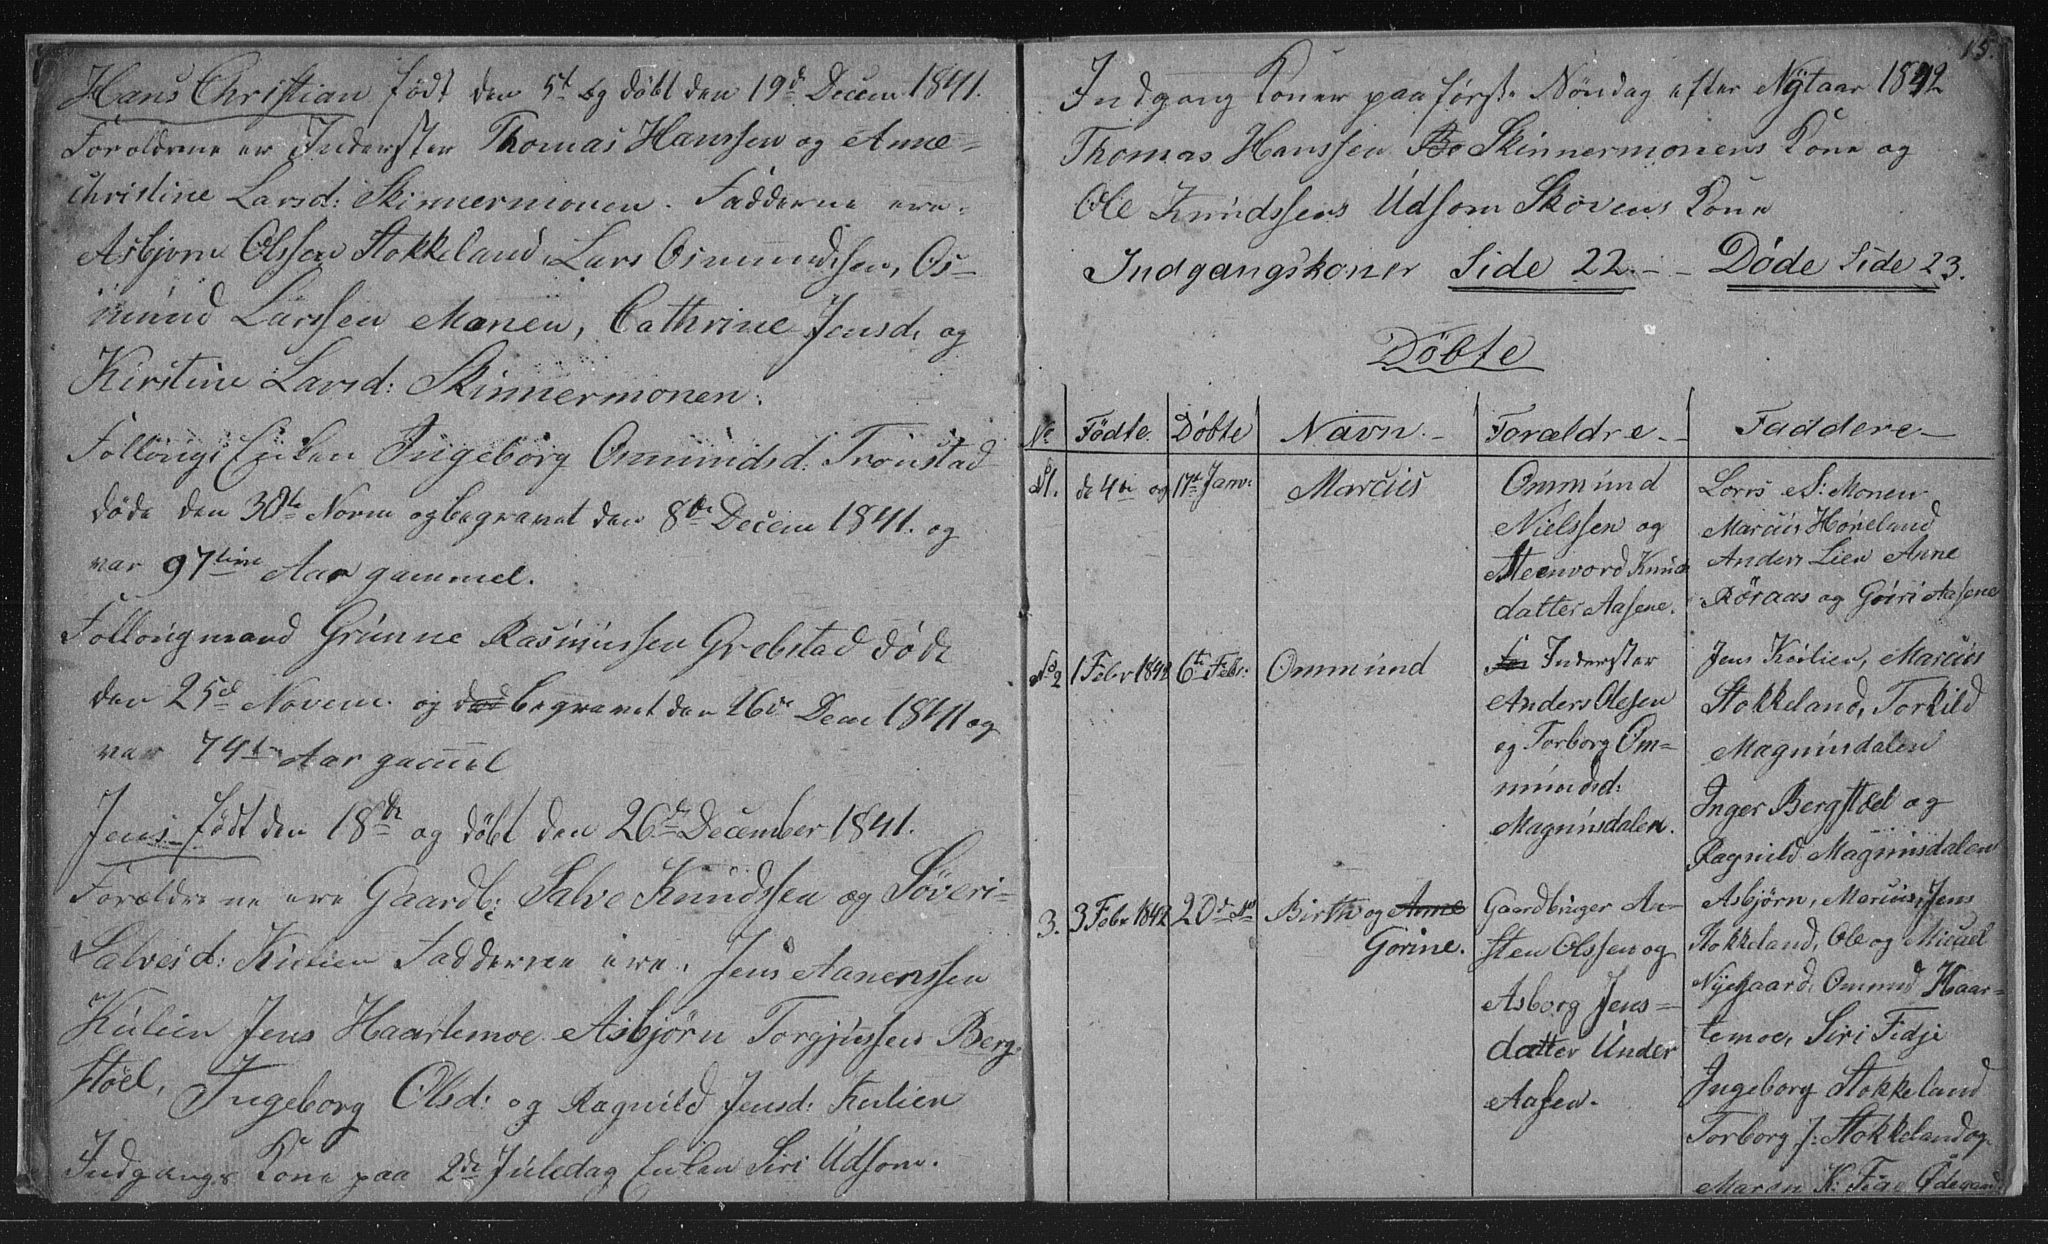 Hans Christian født den 5t og døbt den 19de Decem 1841.
Foroldrene er Inderster Thomas Hanssen og Anne-
Christine Larsd: Skinnermonen. Fadderne ere.
Asbjorn Olssen Stokkeland, Lars Osmundssen, Os-
mund Larssen Monen, Cathrine Jensd: og
Kirstine Larsd: Skinnermonen.
Follougs Enken Ingeborg Ommundsd: Tronstad
døde den 30te Novm og begravet den 8de Decem 1841. og
var 97tine Aar gammel.
Follougmand Grunne Rasmussen Grebstad døde
den 25d Novem. og ded begravet den 16de Decm 1841 og
var 74t Aar gammel
Jens født den 18de og døbt den 26de December 1841.
Forældrene ere Gaardb: Salve Knudssen og Søveri-
Salvesd: Kulien Fadderne ere. Jens Aanenssen
Kulien Jens Haartemoe Asbjørn Torgjussen Berg-
støel, Ingeborg Olsd: og Ragnild Jensd: Kulien
Indgangs Kone paa 2de Juledag Enken Siri Udsom.
15.
Indgang Koner paa første Søndag efter Nytaar 1842
Thomas Hanssen Bo Skinnermonens Kone og
Ole Knudssens Udsom Skovens Kone
Indgangskoner Side 22. - - Døde Side 23.
Døbte
No Fødte. Døbte Navn. Forældre. Faddere
N1. de 4de og 17de Janv: Marcus
Ommund
Nielssen og
Steenvord Knuds
datter Aasene.
Lorrs S: Monen
Marcus Høneland
Anders Lien Anne
Røraas og Goiri Aasene
No2 1 Febr 1842 6te Febr: Ommund
Inderster
Anders Olesen
og Torborg Om-
mundsd:
Magnusdalen.
Jens Kulien, Marcus
Stokkeland, Torkild
Magnusdalen
Inger Bergstøel og
Ragnild Magnusdalen
3. 3 Febr 1842 20de Birth og Anne
Gorine.
Gaardbruger An-
sten Olssen og
Asborg Jens-
datter Under
Aasen.
Asbjørn, Marcus, Jens
Stokkeland, Ole og Micael
Nyegaard, Ommund Haar-
temoe, Siri Fidje
Ingeborg Stokkeland
Torborg J: Stokkeland og
Maren K: Ødegaard